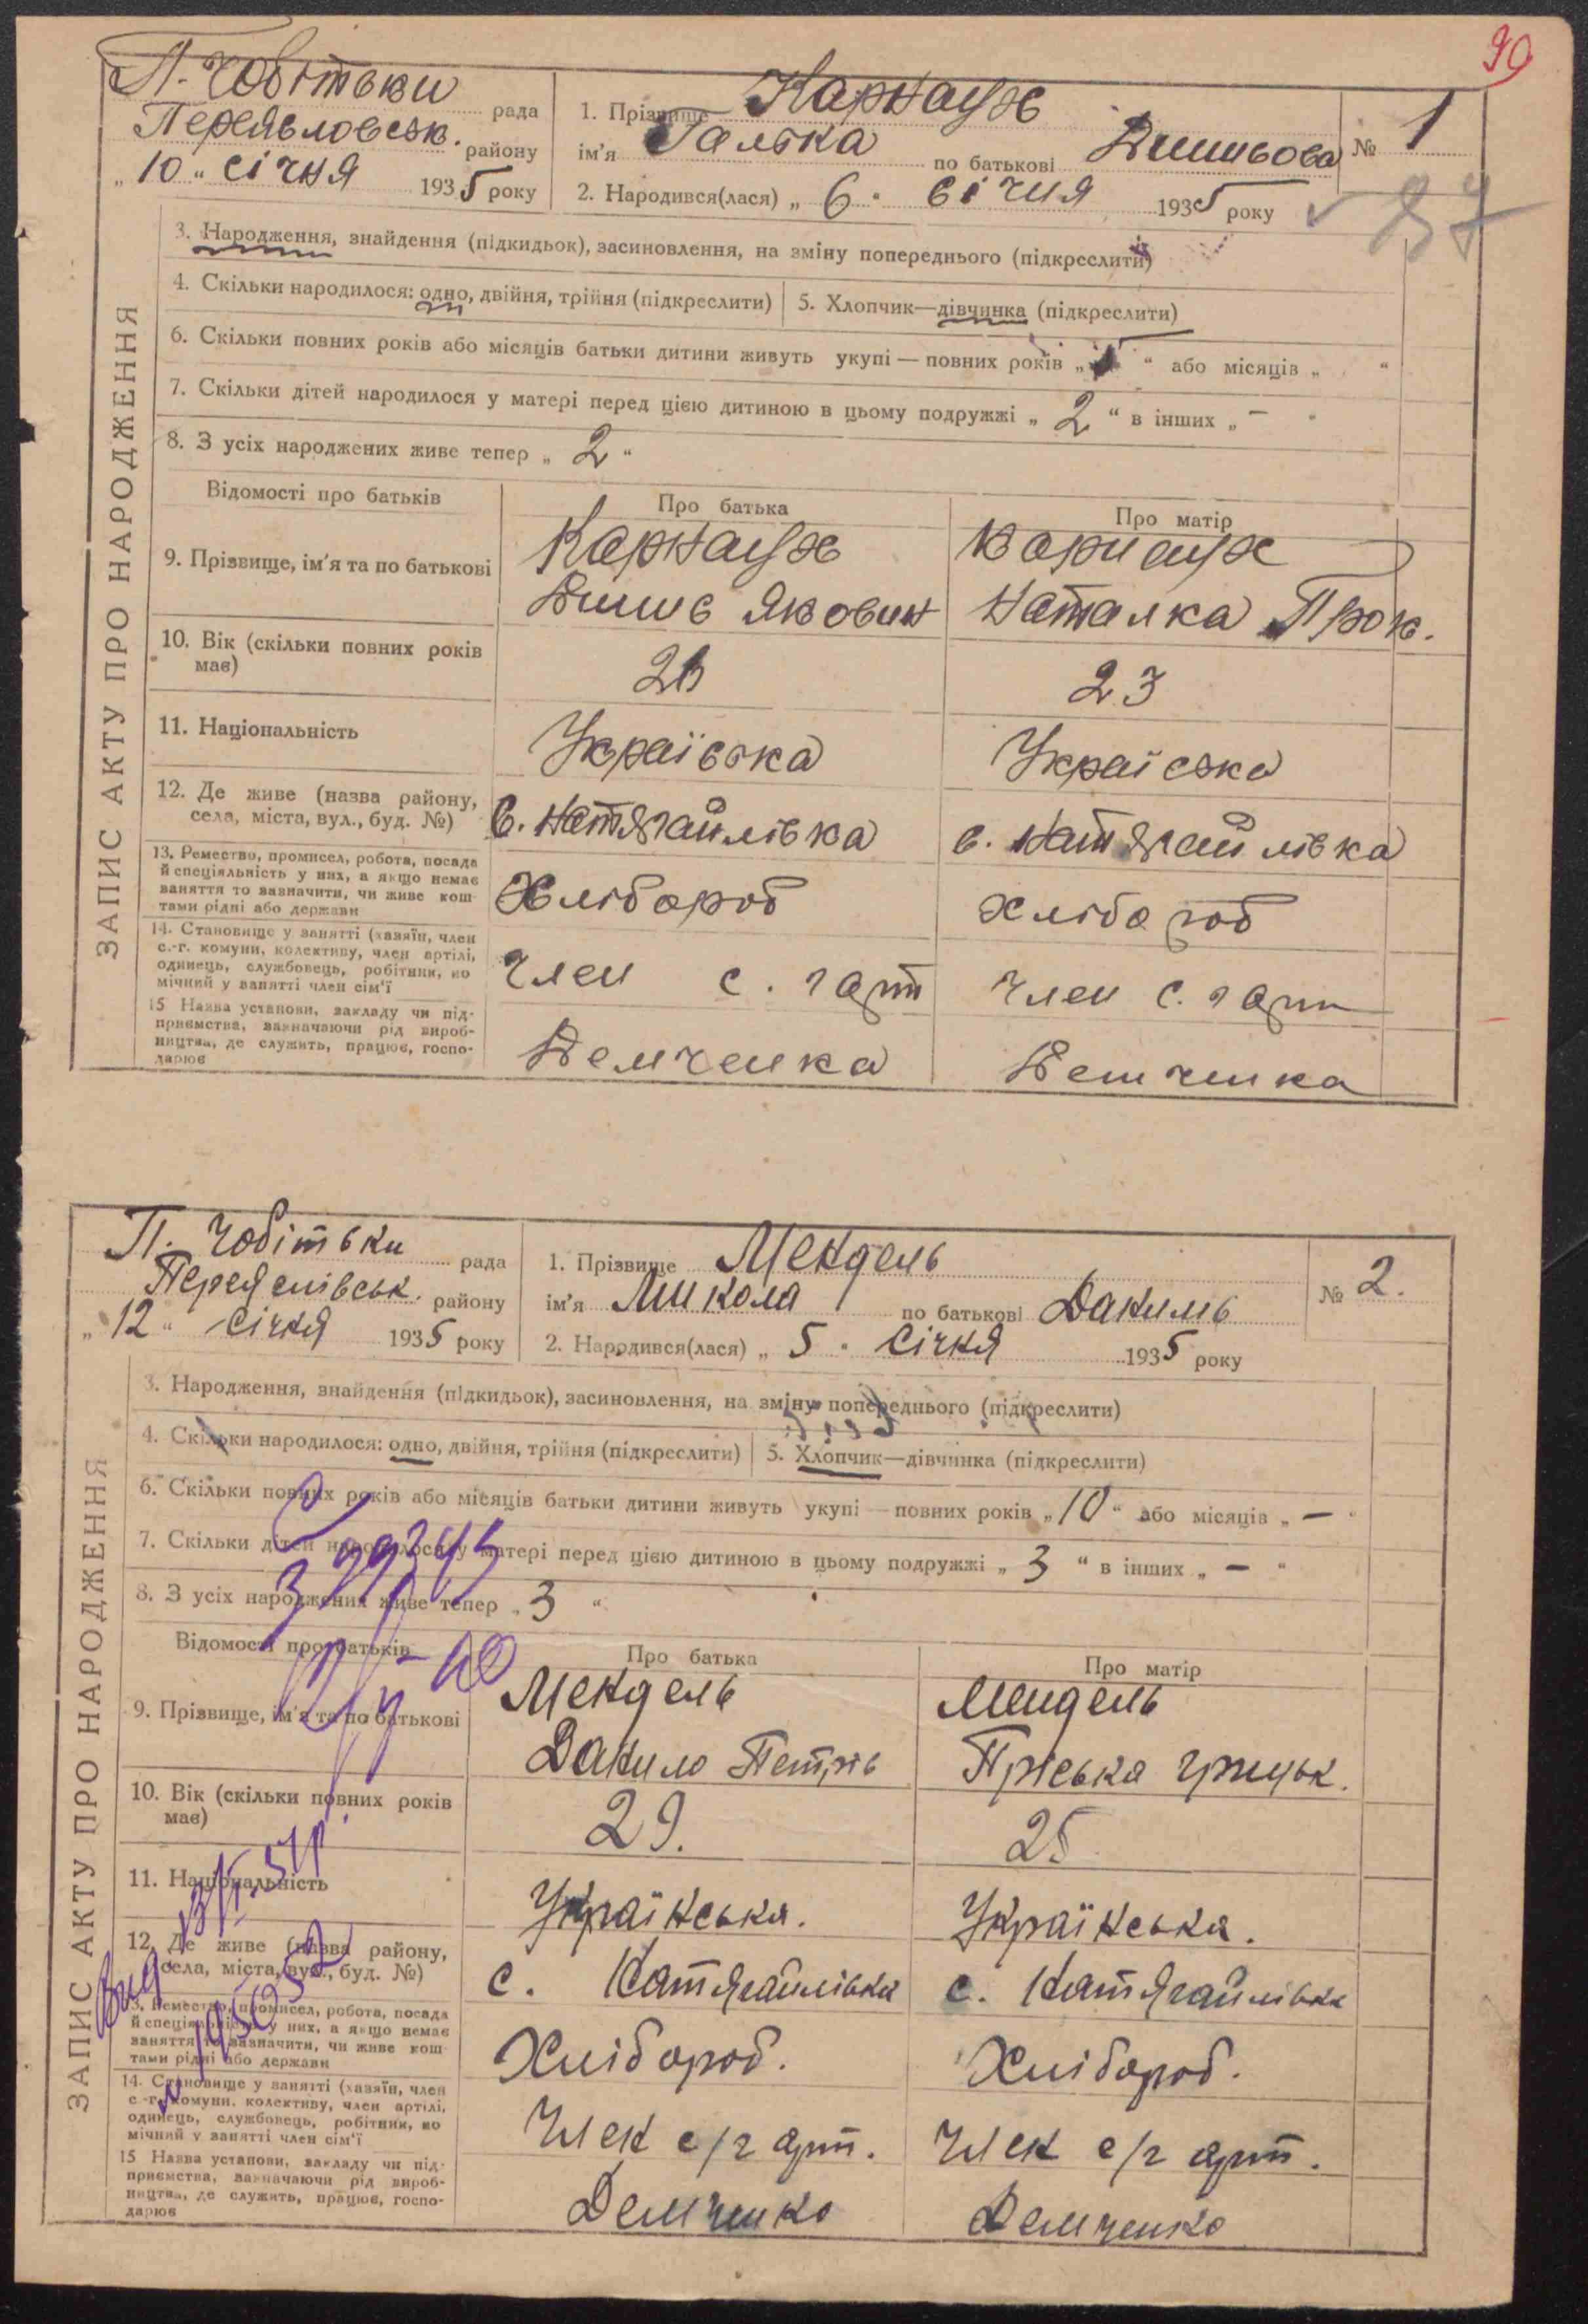 90
П. Чобітьки рада
Переявловськ. району
„ 10 “ січня 1935 року
1. Прізвище Карнаух
ім'я Галька по батькові
№ 1
2. Народився(лася) „ 6 “ січня 1935 року
ЗАПИС АКТУ ПРО НАРОДЖЕННЯ
3. Народження, знайдення (підкидьок), засиновлення, на зміну попереднього (підкреслити)
4. Скільки народилося: одно, двійня, трійня (підкреслити)
5. Хлопчик—дівчинка (підкреслити)
6. Скільки повних років або місяців батьки дитини живуть укупі — повних років „ “ або місяців „ “
7. Скільки дітей народилося у матері перед цією дитиною в цьому подружжі „ 2 “ в інших „ – “
8. З усіх народжених живе тепер „ 2 “
Відомості про батьків
Про батька
Про матір
9. Прізвище, ім'я та по батькові
Карнаух
Якович
Карнаух
Наталка Прок.
10. Вік (скільки повних років
має)
23
11. Національність
Україська
Україська
12. Де живе (назва району,
села, міста, вул., буд. №)
с. Натягайлівка
с. Натягайлівка
13. Ремество, промисел, робота, посада
й спеціяльність у них, а якщо немає
заняття то зазначити, чи живе кош-
тами рідні або держави
Хлібороб
хлібороб
14. Становище у занятті (хазяїн, член
с.-г. комуни, колективу, член артілі,
одинець, службовець, робітник, по
мічний у занятті член сім'ї
член с. г арт
член с. г арт
15 Назва установи, закладу чи під-
приємства, зазначаючи рід вироб-
ництва, де служить, працює, госпо-
дарює
Демченка
Демченка
П. Чобітьки рада
Переяслівськ. району
„ 12 “ Січня 1935 року
1. Прізвище Мендель
ім'я Микола по батькові Данилів
№ 2.
2. Народився(лася) „ 5 “ Січня 1935 року
ЗАПИС АКТУ ПРО НАРОДЖЕННЯ
3. Народження, знайдення (підкидьок), засиновлення, на зміну попереднього (підкреслити)
4. Скільки народилося: одно, двійня, трійня (підкреслити)
5. Хлопчик—дівчинка (підкреслити)
6. Скільки повних років або місяців батьки дитини живуть укупі — повних років „ 10 “ або місяців „ – “
7. Скільки дітей народилося у матері перед цією дитиною в цьому подружжі „ 3 “ в інших „ – “
8. З усіх народжених живе тепер „ 3 “
Відомості про батьків
Про батька
Про матір
9. Прізвище, ім'я та по батькові
Мендель
Данило Петрів
Мендель
Пріська Грицьк.
10. Вік (скільки повних років
має)
29.
25
11. Національність
Українська.
Українська.
12. Де живе (назва району,
села, міста, вул., буд. №)
с. Натягайлівка
с. Натягайлівка
13. Ремество, промисел, робота, посада
й спеціяльність у них, а якщо немає
заняття то зазначити, чи живе кош-
тами рідні або держави
Хлібороб.
Хлібороб.
14. Становище у занятті (хазяїн, член
с.-г. комуни, колективу, член артілі,
одинець, службовець, робітник, по
мічний у занятті член сім'ї
Член с/г арт.
Член с/г арт.
15 Назва установи, закладу чи під-
приємства, зазначаючи рід вироб-
ництва, де служить, працює, госпо-
дарює
Демченко
Демченко